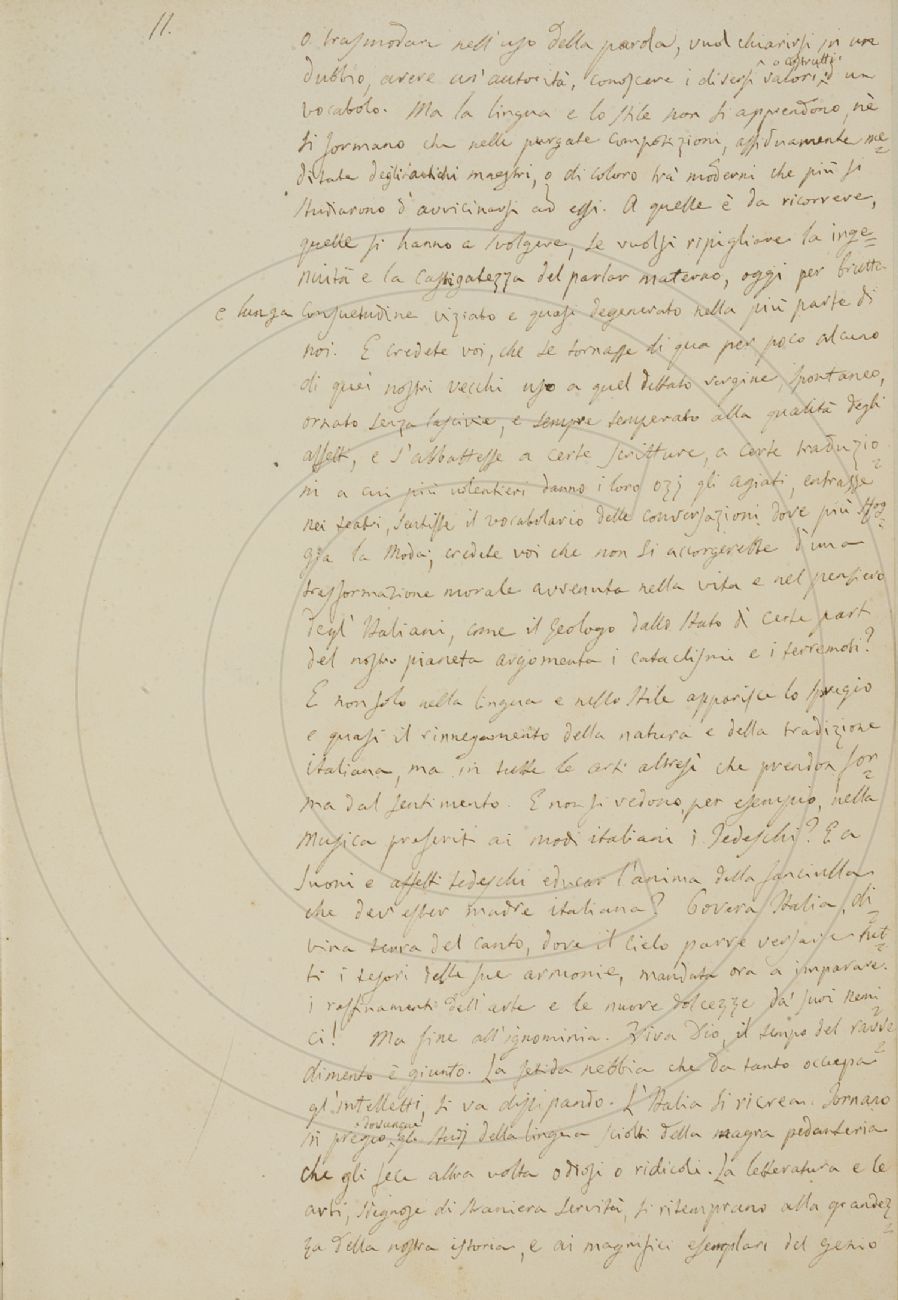 11.
o trasmodare nell'uso della parola, vuol chiarirsi in un
dubbio, avere un'autorità, conoscere i diversi valori, o costrutti d'un
vocabolo. Ma la lingua e lo stile non si apprendono, nè
si formano che nelle purgate composizioni, assiduamente me=
ditate degli antichi maestri, o di coloro tra' moderni che più si
studiarono d'avvicinarsi ad essi. A quelle è da ricorrere,
quelle si hanno a svolgere, se vuolsi ripigliare la inge=
nuità e la castigatezza del parlar materno, oggi per brutta
e lunga consuetudine viziato e quasi degenerato nella più parte di
noi. E credete voi, che se tornasse di qua per poco alcuno
di quei nostri vecchi uso a quel dettato vergine, spontaneo,
ornato senza lascivie, e sempre temperato alla qualità degli
affetti, e s'abbattesse a certe scritture, a certe traduzio=
ni a cui più volentieri danno i loro ozj gli agiati, entrasse
nei teatri, sentisse il vocabolario delle conversazioni dove più sfog=
gia la moda; credete voi che non si accorgerebbe d'una
trasformazione morale avvenuta nella vita e nel pensiero
degl'Italiani, come il geologo dallo stato di certe parti
del nostro pianeta argomenta i cataclismi e i terremoti?
E non solo nella lingua e nello stile apparisce lo spregio
e quasi il rinnegamento della natura e della tradizione
italiana, ma in tutte le arti altresì che prendon for=
ma dal sentimento. E non si vedono, per esempio, nella
musica preferiti ai modi italiani i Tedeschi? E a
suoni e affetti tedeschi educar l'anima della fanciulla
che dev'esser madre italiana? Povera Italia, di=
vina terra del canto, dove il cielo parve versasse tut=
ti i tesori delle sue armonie, mandata ora a imparare
i raffinamenti dell'arte e le nuove dolcezze da' suoi nemi=
ci! Ma fine all'ignominia. Viva Dio, il tempo del ravve=
dimento è giunto. La fetida nebbia che da tanto occupa
gl'intelletti, si va dissipando. L'Italia si ricrea. Tornano
in pregio dovunque gli studj della lingua sciolti della magra pedanteria
che gli fece altra volta odiosi o ridicoli. La letteratura e le
arti, sdegnose di straniera servitù, si ritemprano alla grandez=
za della nostra istoria, e ai magnifici esemplari del genio